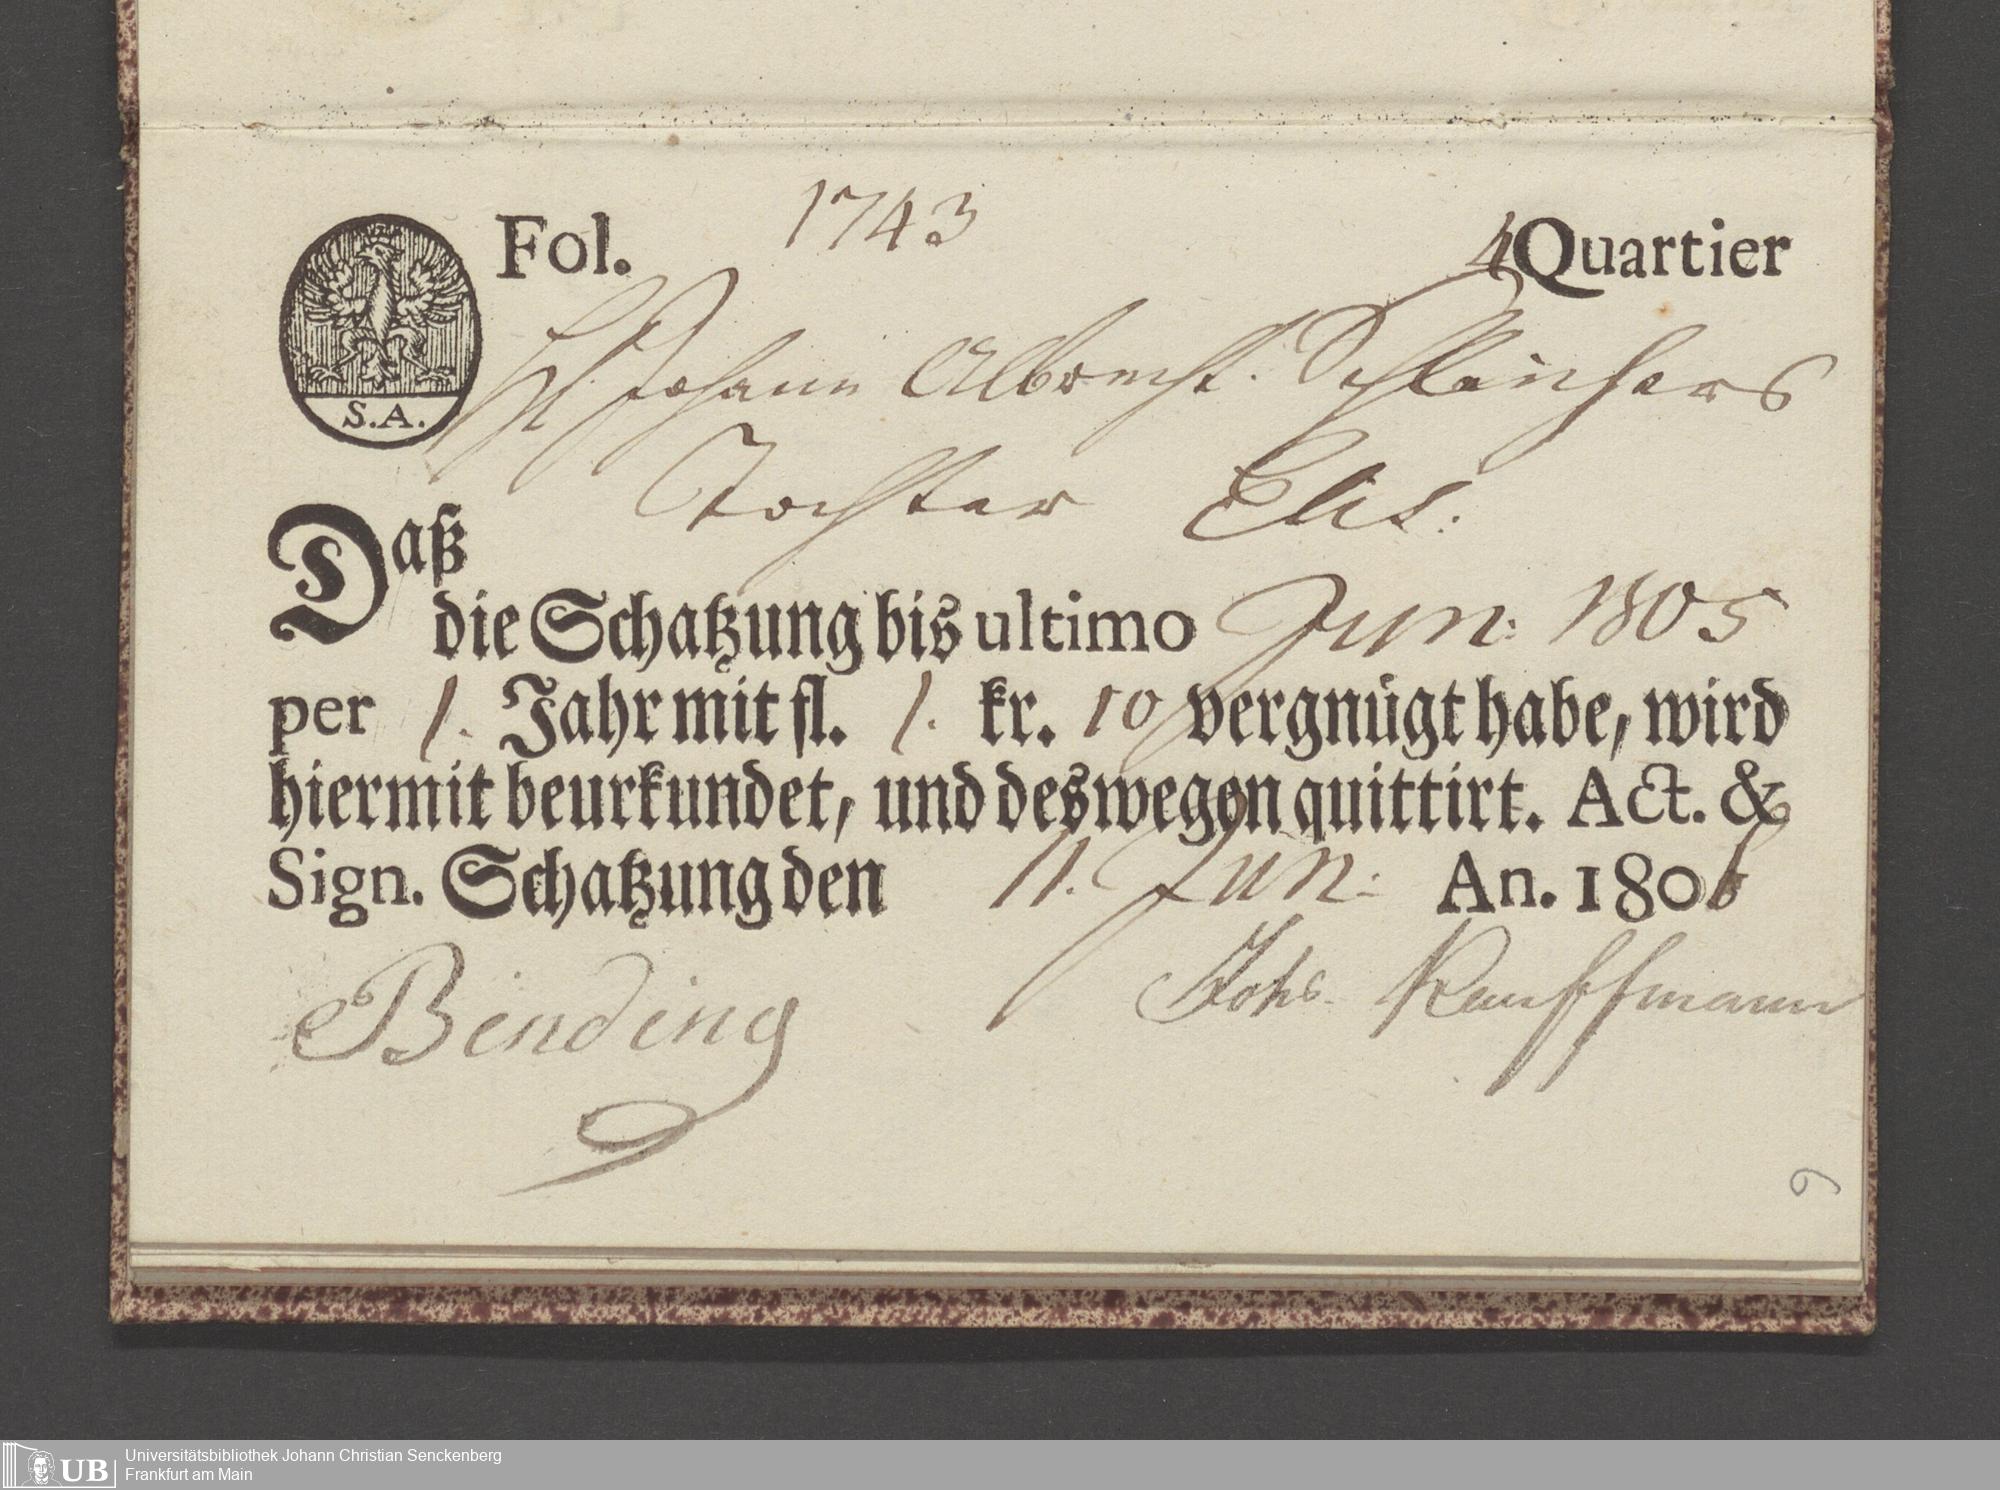 Fol. 1743 4 Quartier
S.A.
Hl. Johann Albrecht Schleichers
Tochter Elis:
Daß
die Schatzung bis ultimo Jun: 1805
per 1. Jahr mit fl. 1. kr. 10 vergnügt habe, wird
hiermit beurkundet, und deswegen quittirt. Act. &
Sign. Schatzung den 11. Jun: An. 1806
Binding Johs. Kauffmann
9
Universitätsbibliothek Johann Christian Senckenberg
UB Frankfurt am Main